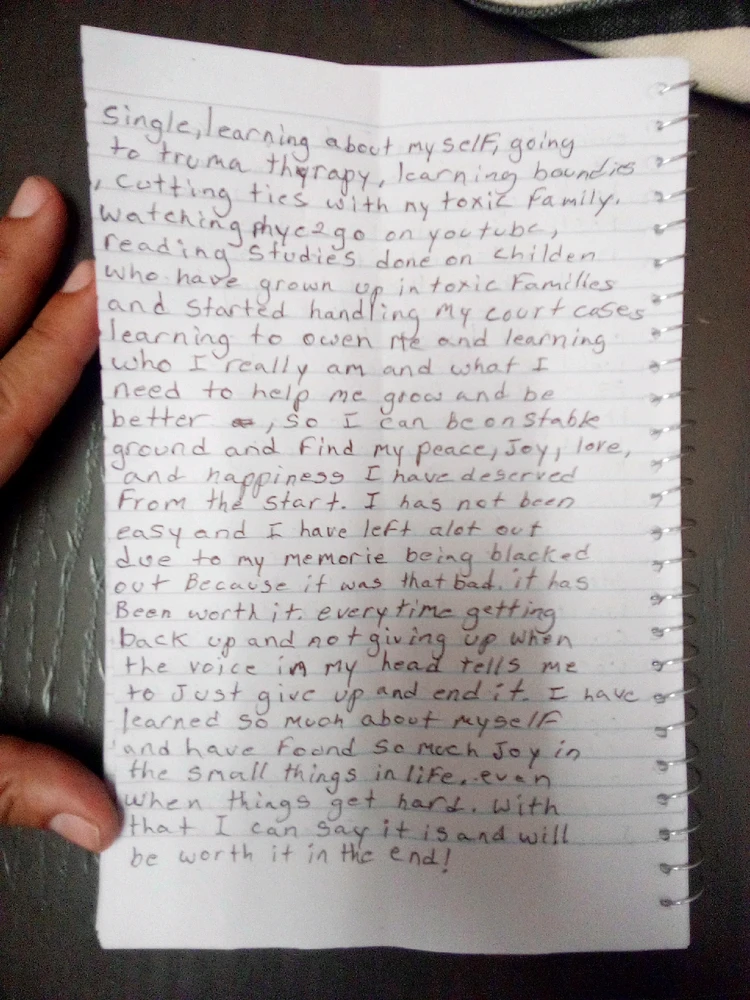 single, learning about my self, going
to truma thyrapy, learning boundies
, cutting ties with my toxic family.
watching phyc2go on youtube,
reading studies done on childen
who have grown up in toxic Families
and started handling my court cases
learning to owen me and learning
who I really am and what I
need to help me grow and be
better , so I can be on stable
ground and find my peace, Joy, love,
and happiness I have deserved
From the start. I has not been
easy and I have left alot out
due to my memorie being blacked
out Because it was that bad. it has
Been worth it. every time getting
back up and not giving up when
the voice in my head tells me
to Just give up and end it. I have
learned so much about myself
and have found so much Joy in
the small things in life. even
when things get hard. With
that I can say it is and will
be worth it in the end!